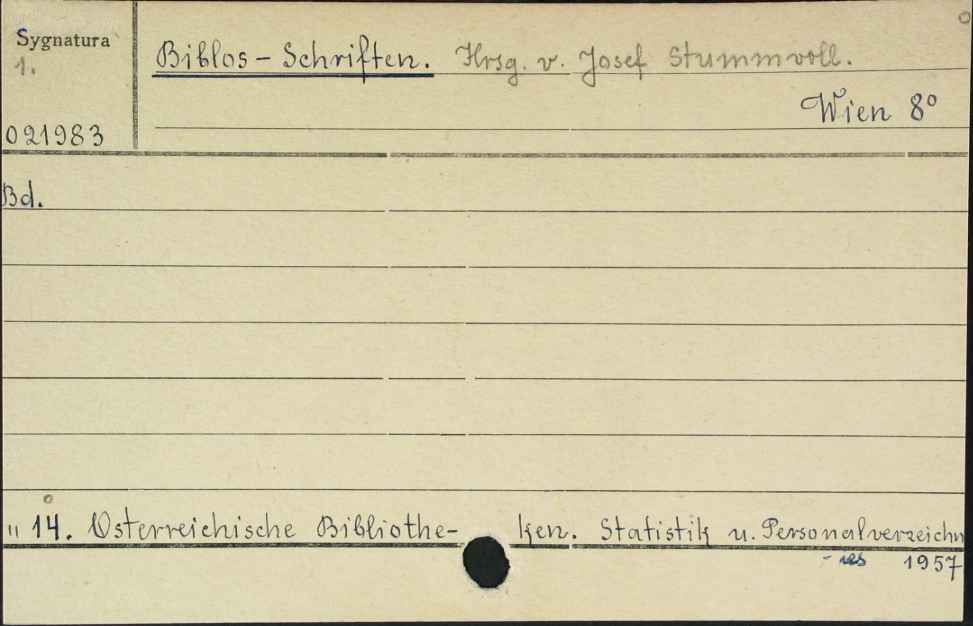 Sygnatura
1.
Biblos - Schriften. Hrsg. v. Josef Stummvoll.
Wien 8°
021983
Bd.
" 14. Österreichische Bibliothe- ken. Statistik u. Personalverzeichn
- is 1957